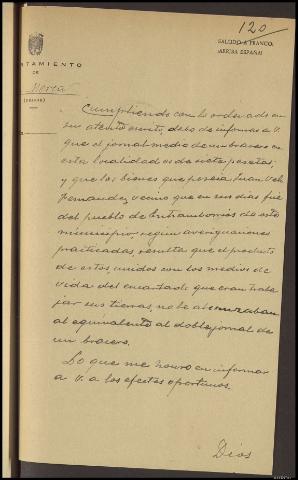 120
SALUDO A FRANCO
¡ARRIBA ESPAÑA!
TAMIENTO
DE
Cumpliendo con lo ordenado en
su atento escrito, debo de informar a V.
que el jornal medio de un bracero en
esta localidad es de siete pesetas;
y que los bienes que poseía Juan Vela
Fernandez, vecino que en sus dias fué
del pueblo de Entrambosríos de este
municipio, según averiguaciones
practicadas, resulta que el producto
de estos, unidos con los medios de
vida del encartado que eran traba
jar sus tierras, no le alcanzaban
al equivalente al doble jornal de
un bracero.
Lo que me honro en informar
a V. a los efectos oportunos.
Dios